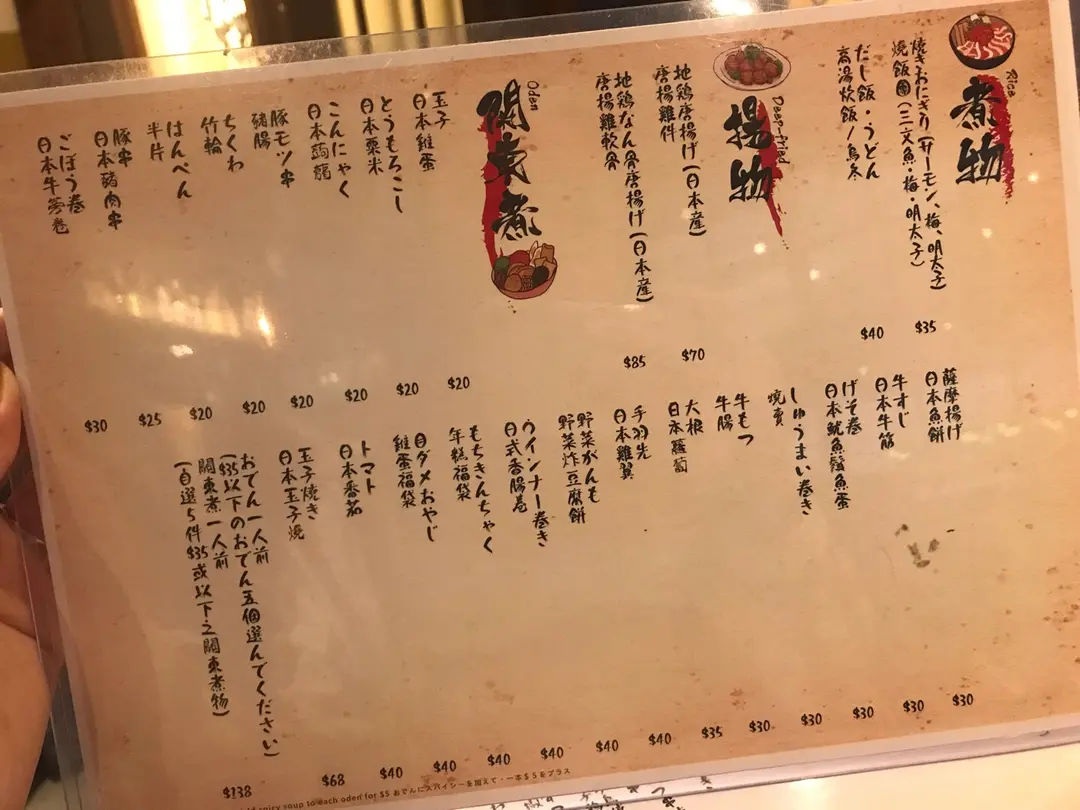 Rice
煮物
焼きおにぎり(サーモン、梅、明太子)
燒飯團(三文魚・梅・明太子)
$35
だし飯・うどん
高湯炊飯/烏冬
$40
Deep-fried
揚物
地鶏唐揚げ(日本産)
唐揚雞件
$70
地鶏なん骨唐揚げ(日本産)
唐揚雞軟骨
$85
Oden
関東煮
玉子
日本雞蛋
$20
とうもろこし
日本粟米
$20
こんにゃく
日本蒟蒻
$20
豚モツ串
豬腸
$20
ちくわ
竹輪
$20
はんぺん
半片
$20
豚串
日本豬肉串
$25
ごぼう巻
日本牛蒡卷
$30
薩摩揚げ
日本魚餅
$30
牛すじ
日本牛筋
$30
げそ巻
日本魷魚鬚魚蛋
$30
しゅうまい巻き
燒賣
$30
牛もつ
牛腸
$30
大根
日本蘿蔔
$35
手羽先
日本雞翼
$40
野菜がんも
野菜炸豆腐餅
$40
ウインナー巻き
日式香腸卷
$40
もちきんちゃく
年糕福袋
$40
目ダメおやじ
雞蛋福袋
$40
トマト
日本番茄
$40
玉子焼き
日本玉子燒
$68
おでん一人前
($35以下のおでん五個選んでください)
關東煮一人前
(自選5件$35或以下之關東煮物)
$138
soup to each oden for $5 おでんにスパイシーを加えて・一本$5をプラス